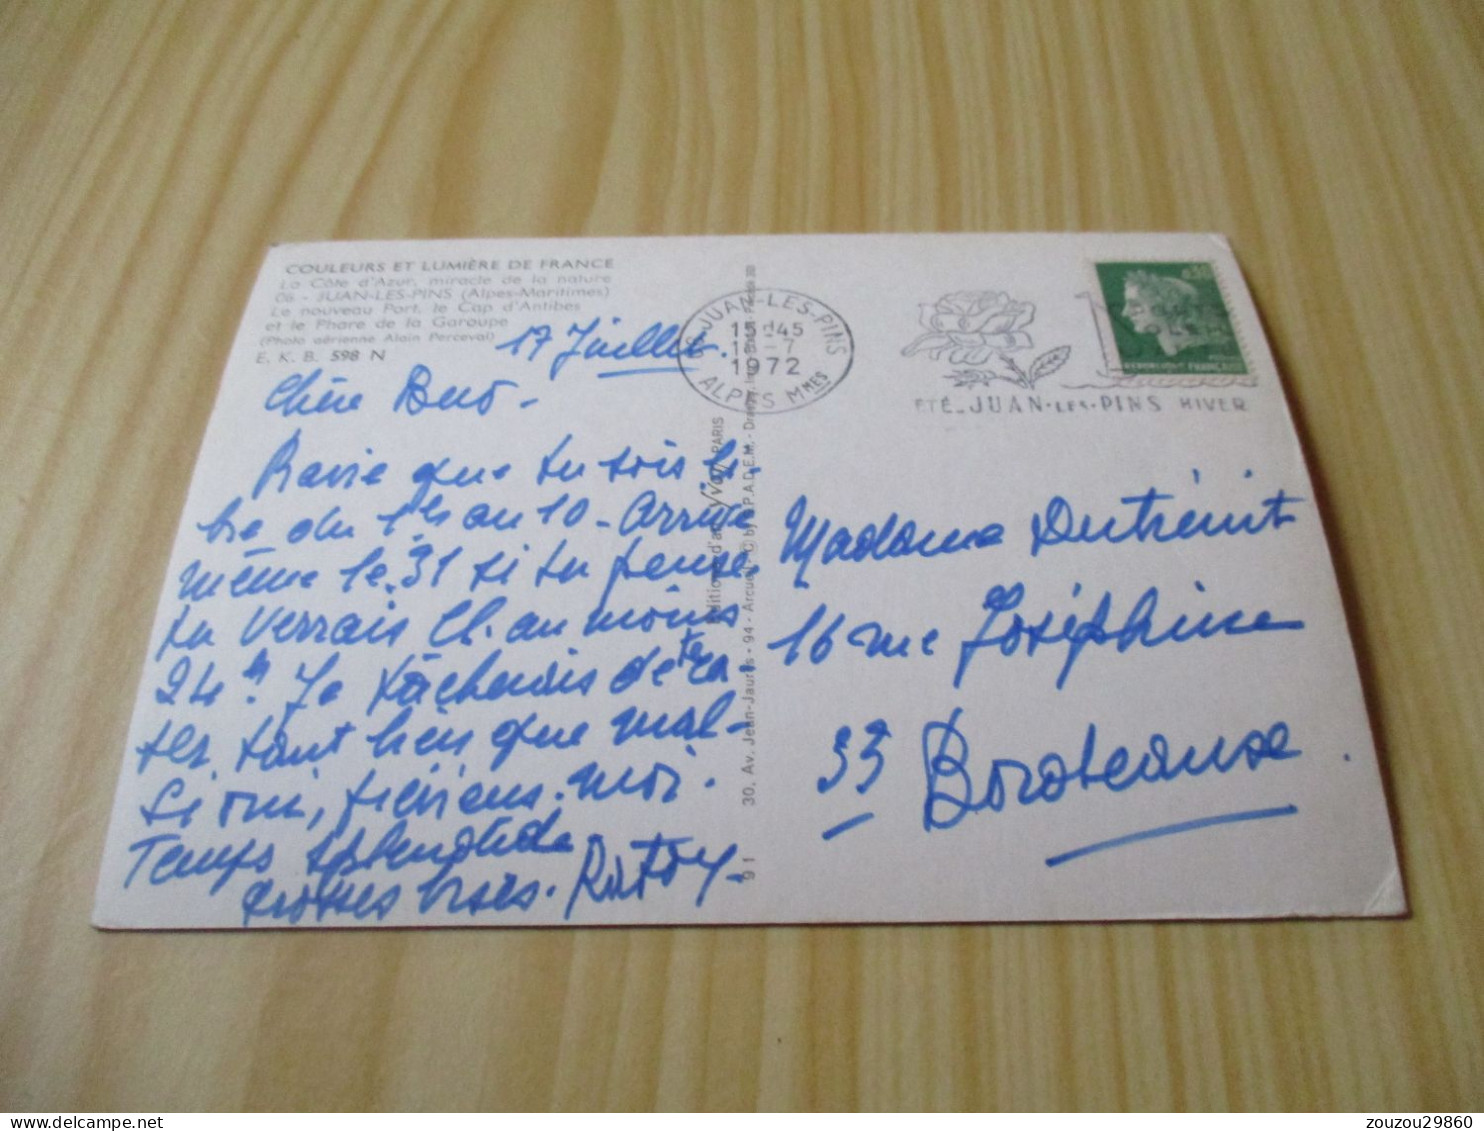 COULEURS ET LUMIÈRE DE FRANCE
La Côte d'Azur, miracle de la nature
06 - JUAN-LES-PINS (Alpes-Maritimes)
Le nouveau Port, le Cap d'Antibes
et le Phare de la Garoupe
(Photo aérienne Alain Perceval)
E. K. B. 598 N
17 Juillet.
Chère
Ravie que tu sois li-
bre du 1er au 10 - Arrive
même le 31 si tu peux
tu verrais Cl. au moins
24 h. Je tâcherais de te ca-
ser tant bien que mal -
Si oui, préviens-moi.
Temps splendide
grosses bises.
Editions d'art Yvon PARIS
30, Av. Jean-Jaurès - 94 - Arcueil
91
06 JUAN-LES-PINS
15H45
-7
1972
ALPES MMES
ÉTÉ - JUAN-LES-PINS HIVER
0,30
REPUBLIQUE FRANCAISE
Madame
16 rue Joséphine
33 Bordeaux.
zouzou29860